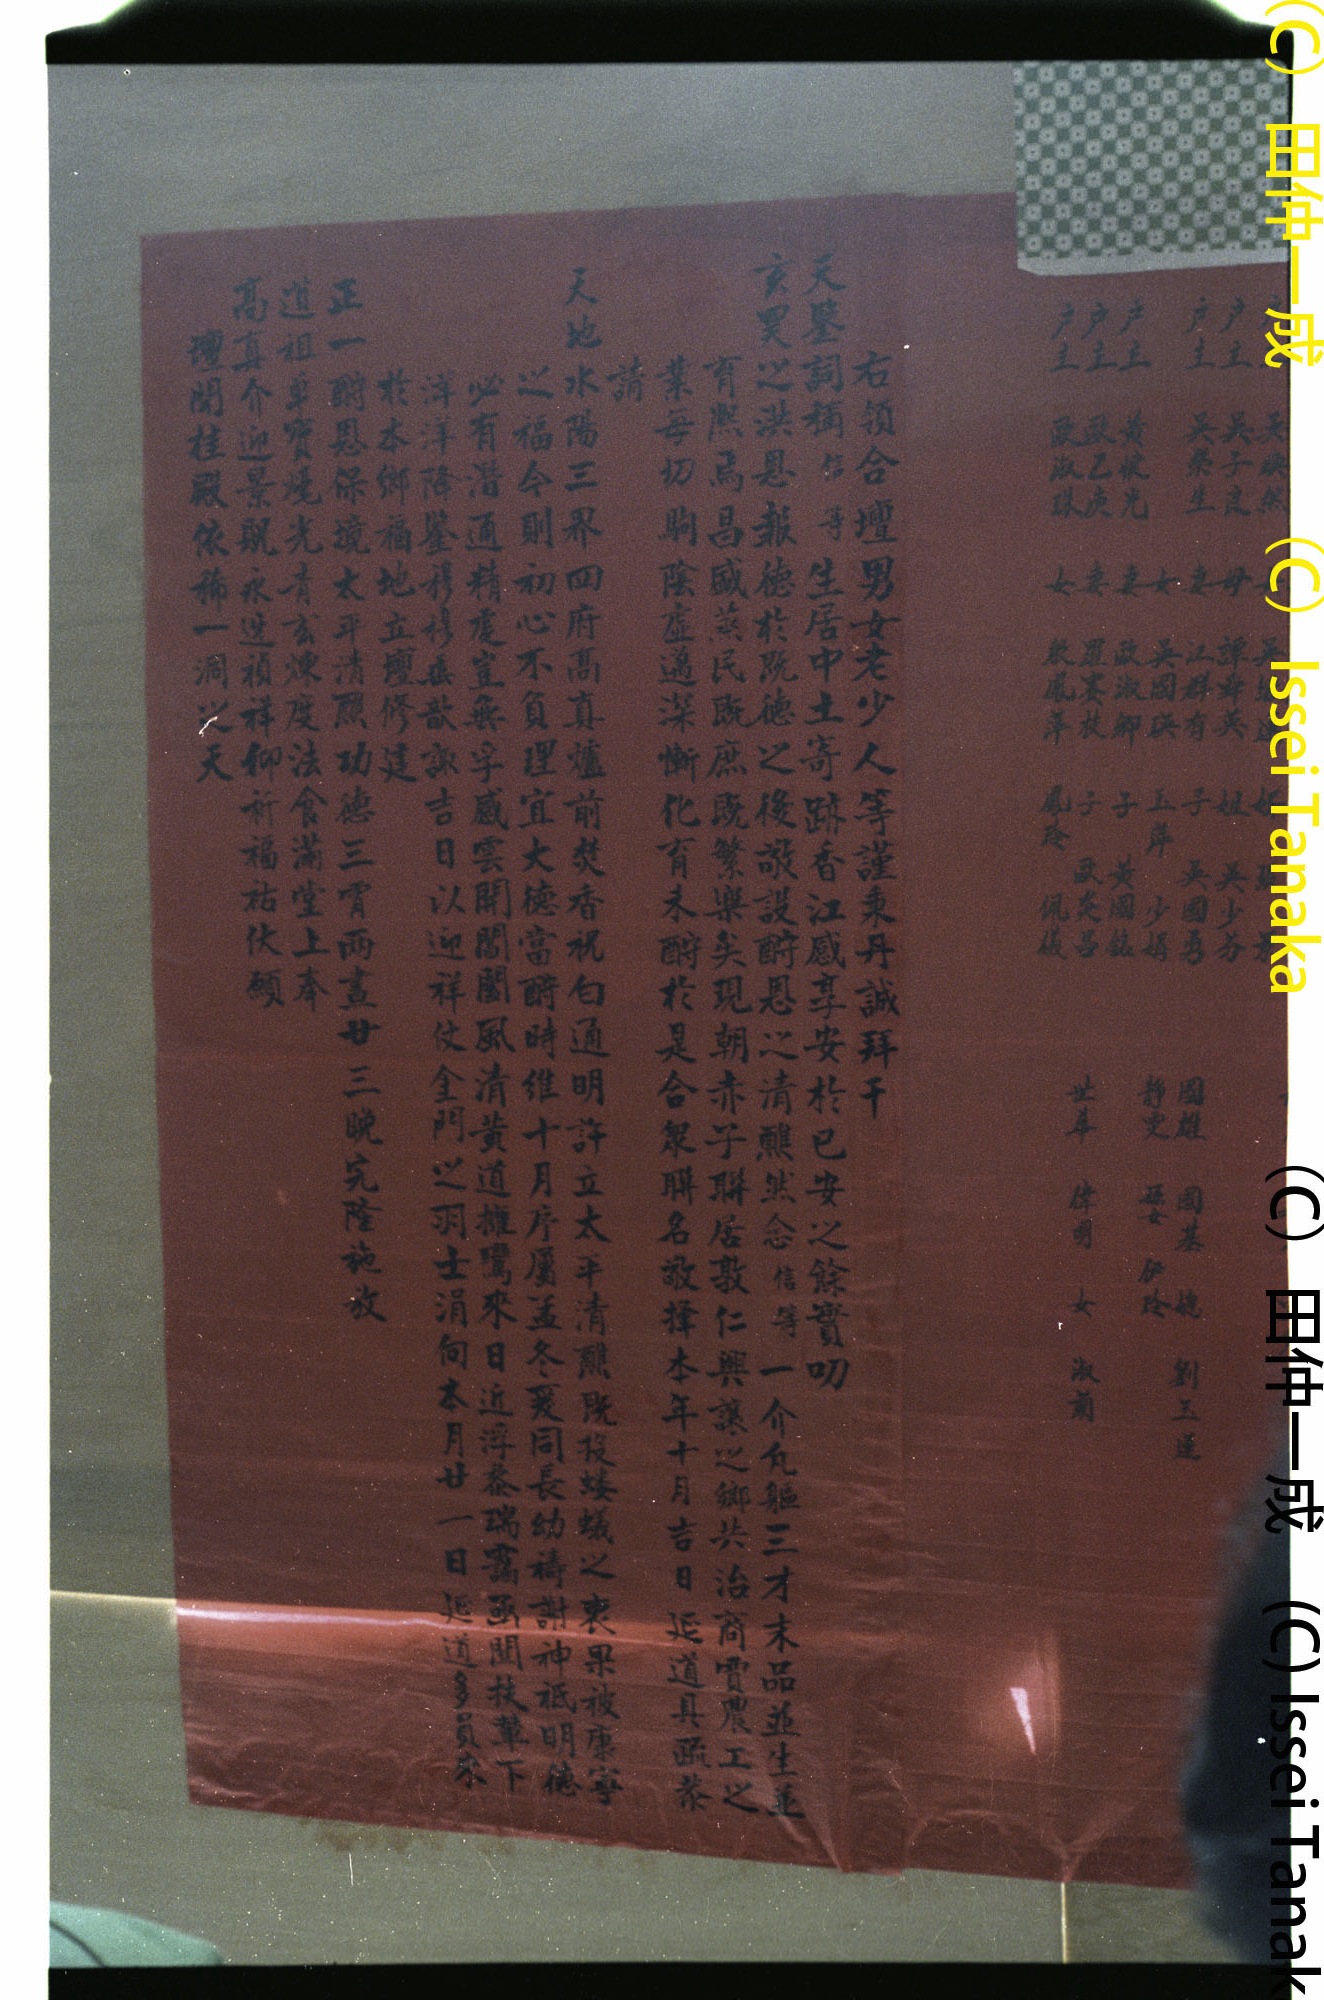 户主 吳子良 母 譚群英 妹 吳少芬
户主 吳 生 妻 江群有 子 吳國勇 國雄 國基 媳 劉玉蓮
女 吳國瑛 玉萍 少娟 靜雯
户主 黃 光 妻 歐淑卿 子 黃國
户主 歐乙庚 妻 羅賽枝 子 歐 昌 世華 偉明 女 淑
户主 歐淑 女 鳳萍 鳳玲 佩儀
右領合壇男女老少人等謹秉丹誠拜干
天鑒詞稱信等生居中土寄跡香江感享安於已安之餘實叨
玄旻之洪恩報德於既德之後敬設酧恩之清醮然念信等一介凡軀三才末品並生並
育熈焉昌盛蒸民既庶既繁樂矣現朝赤子聯居敦仁興讓之鄉共治商賈農工之
業每切駒陰虛邁深慚化育未酧於是合衆聯名敬擇本年十月吉日延道具疏恭
請
天地水陽三界四府高真爐前焚香祝白通明許立太平清醮既投螻蟻之衷果被康寧
之福今則初心不負理宜大德當酧時維十月序屬孟冬爰同長幼禱謝神祗明德
必有潛通精虔豈無孚感雲開閶闔風清黃道擁鸞來日近浮黎瑞靄函關扶輦下
洋洋降鑒穆穆垂歆諏吉日以迎祥仗金門之羽士涓向本月廿一日延道多員來
於本鄉福地立壇修建
正一酧恩保境太平清醮功德三宵兩晝廿三晚完隆施放
道祖 寶 光青玄煉度法食滿堂上奉
高真介迎景貺永迓禎祥仰祈福祜伏願
壇開桂殿依稀一洞之天
(C) 田仲一成 (C) Issei Tanaka (C) 田仲一成 (C) Issei Tanak